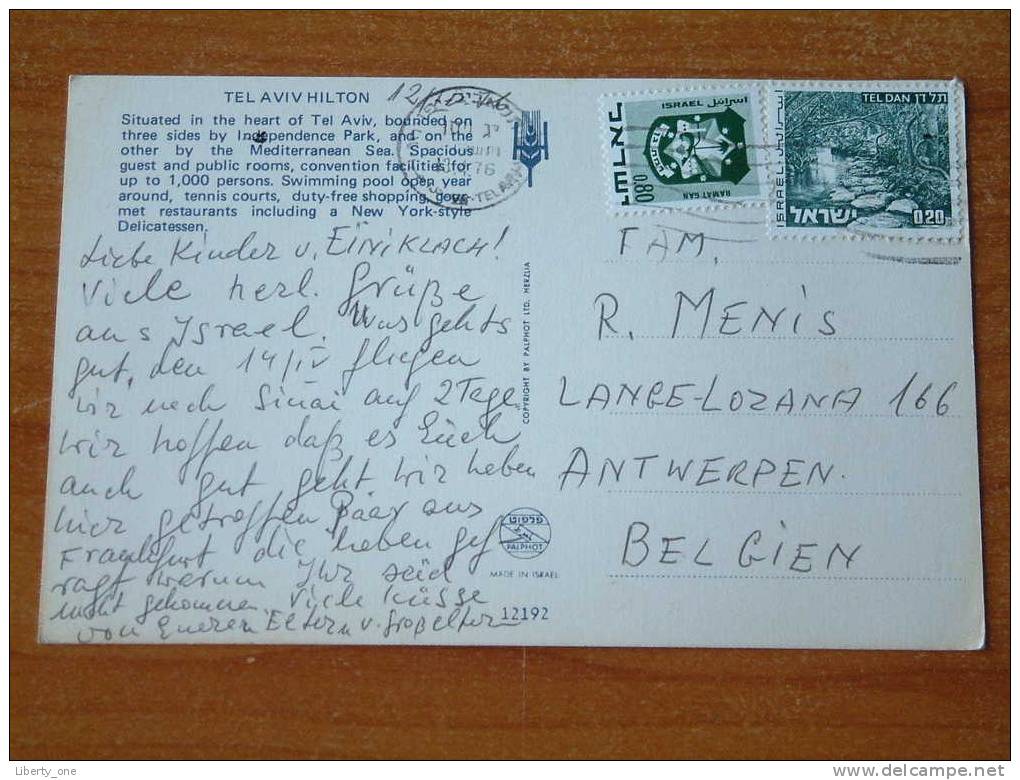 TEL AVIV HILTON
Situated in the heart of Tel Aviv, bounded on
three sides by Independence Park, and on the
other by the Mediterranean Sea. Spacious
guest and public rooms, convention facilities for
up to 1,000 persons. Swimming pool open year
around, tennis courts, duty-free shopping, gour-
met restaurants including a New York-style
Delicatessen.
Liebe Kinder u. EINIKLACH!
Viele herl. Grüße
aus Israel. Uns gehts
gut, den 14/IV fliegen
wir nach Sinai auf 2 Tage
wir hoffen daß es Euch
auch gut geht wir haben
hier getroffen Paar aus
Frankfurt die haben gef
ragt warum Ihr seid
nicht gekommen. Viele Küsse
von Eueren Eltern u. Großeltern
COPYRIGHT BY PALPHOT LTD. HERZLIA
פלפוט
PALPHOT
MADE IN ISRAEL
12192
76
TEL AVIV
ISRAEL اسرائيل
ישראל
0.80
RAMAT GAN
TEL DAN תל דן
ISRAEL اسرائيل
ישראל
0.20
FAM.
R. MENIS
LANGE-LOZANA 166
ANTWERPEN.
BELGIEN
Liberty_one
delcampe.net